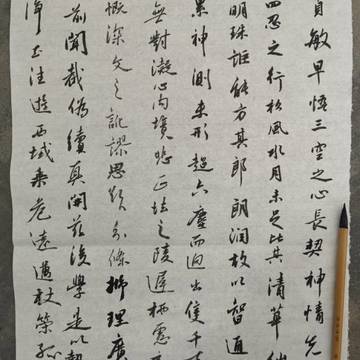 貞敏早悟三空之心長契神情先
四忍之行松風水月未足比其清華仙
明珠詎能方其郎朗潤故以智通
累神測未形超六塵而迥出隻千
無對凝心內境悲正法之陵遲栖慮
慨深文之訛謬思欲分條析理廣
前聞截偽續真開茲後學是以翹
淨土往遊西域乘危遠邁杖策孤